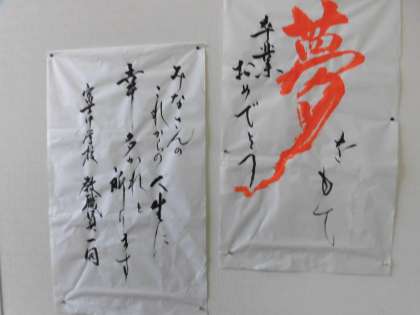 夢
をもて
卒業
おめでとう
みなさんの
これからの人生に
幸多かれと
祈ります
富士中学校 教職員一同